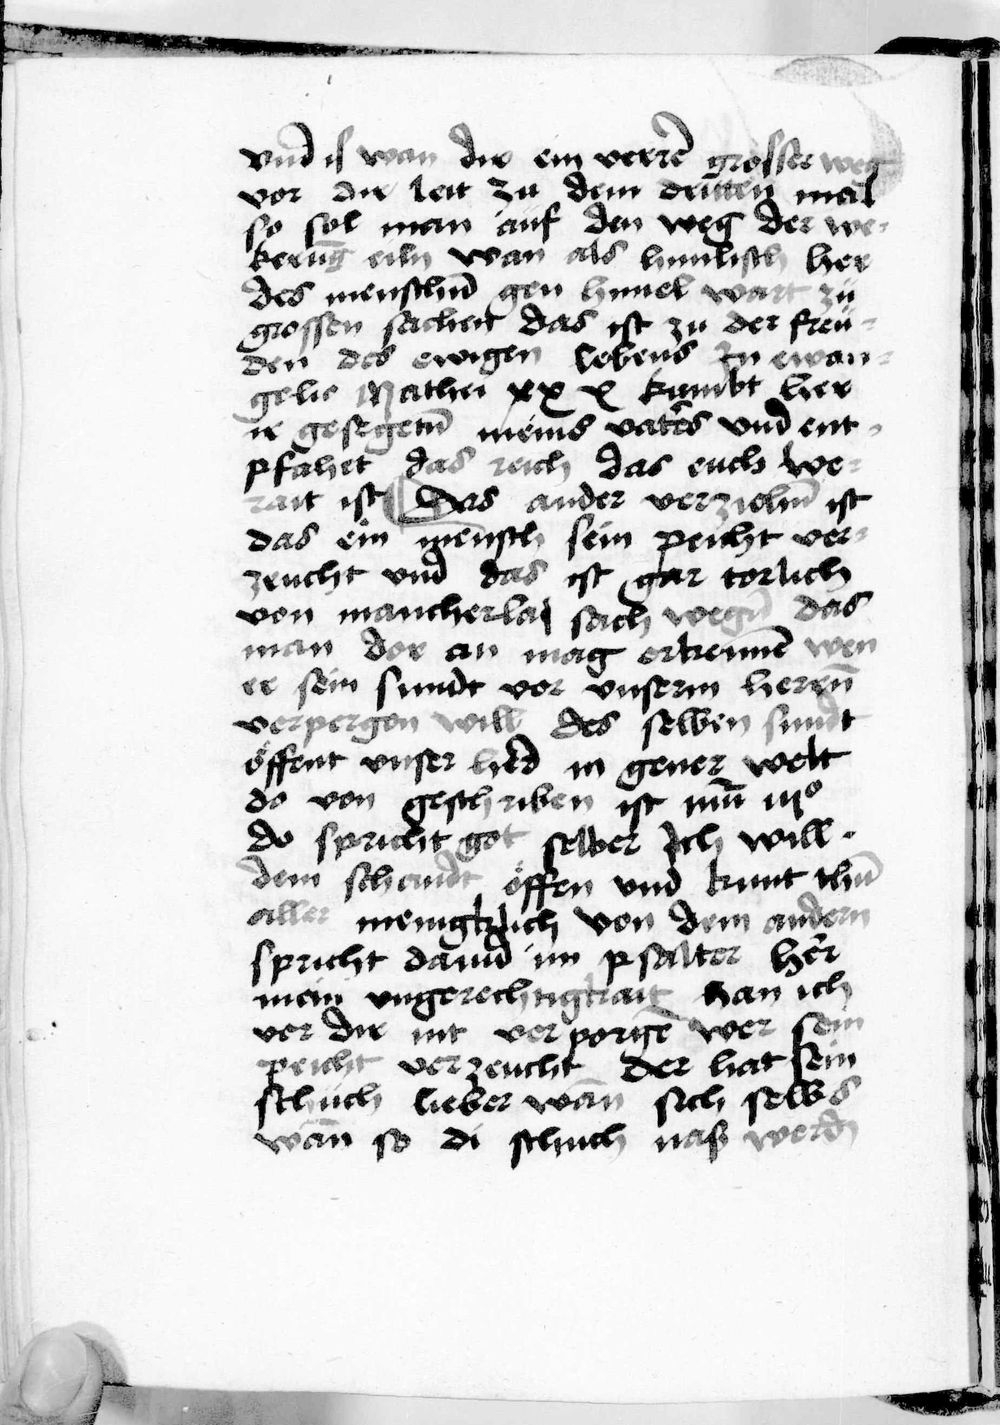 vnd iſ wan dir ein verrē groſſer weg
vor dir leit zu dem dritten mal
ſo ſol man auf den weg der we-
kerūg eiln wan als himliſch her
des menſchn̄ gen himel wart zü
groſſen ſachen das iſt zu der freü-
den des ewigen lebens In ewan-
gelio Mathei xx v kumbt her
ir geſegetn̄ meins vaters vnd ent-
pfahet das reich das euch we-
rait iſt Das ander verziehn̄ iſt
das ein menſch ſein peicht ver-
zeucht vnd das iſt gar torlich
von mancherlai ſach wegn̄ das
man dor an mag erkennē wen
er ſein sundt vor vnſerm herrn̄
verpergen will des ſelben sundt
öffent vnſer her in gener welt
do von geſchriben iſt iijo
do ſpricht got ſelber Ich will
dem ſchandt öffen vnd kunt thn̄
aller menigklich von dem andern
ſpricht dauid im pſalter her
mein vngerechtigkait han ich
vor dir nit verporgē wer ſein
peicht verzeucht der hat ſein
ſchüch lieber wān ſich ſelbs
wān ſo di ſchuch naß werdn̄